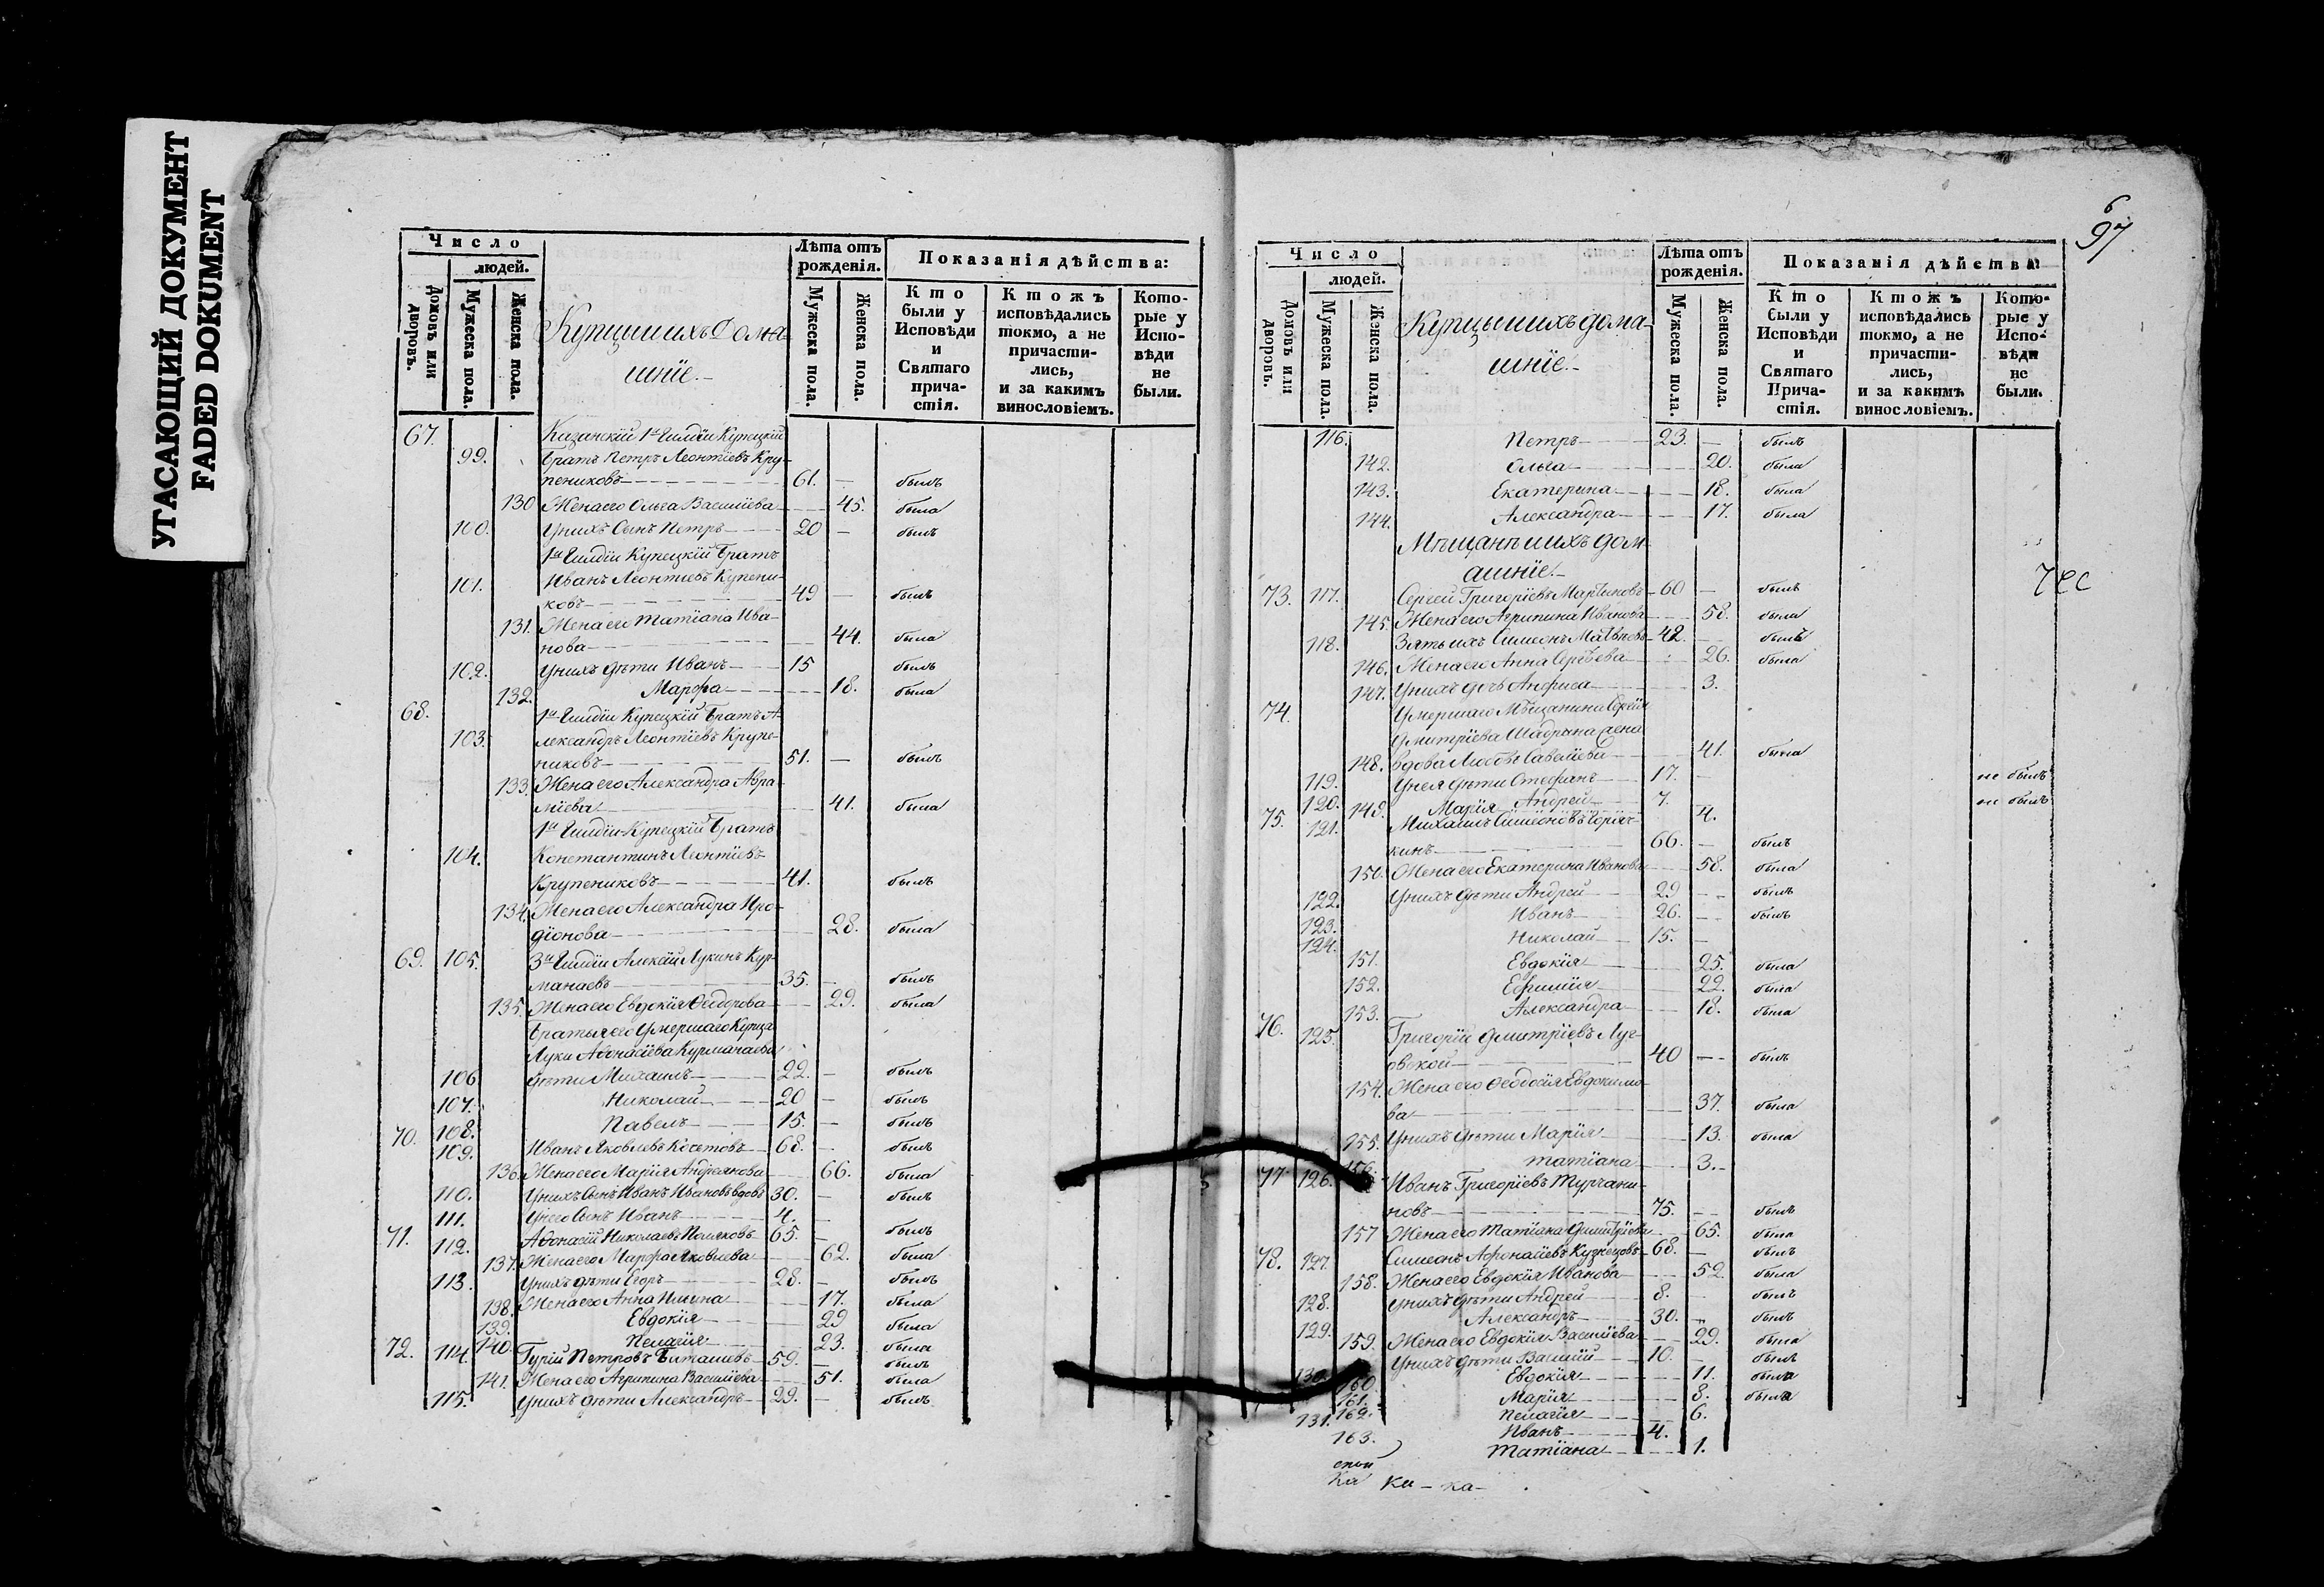 УГАСАЮЩИЙ ДОКУМЕНТ
FADED DOKUMENT
Число
людей.
Домовъ или дворовъ.
Мужеска пола.
Женска пола.
Купцы и ихъ Дома-
шнїе.-
Лѣта отъ рожденія.
Мужеска пола.
Женска пола.
Показанія дѣйства:
Кто были у Исповѣди и Святаго прича-стія.
Ктожъ исповѣдались токмо, а не причасти-лись, и за какимъ винословіемъ.
Кото-рые у Испо-вѣди не были.
67. Казанскїй 1й Гилдїи Купецкїй
99. Братъ Петръ Леонтїевъ Кру-
пениковъ 61. — былъ
130 Жена его Ольга Васильева 45. была
100. У нихъ Сынъ Петръ 20 — былъ
1й Гилдїи Купецкїй Братъ
101. Иванъ Леонтиевъ Купени-
ковъ 49 — былъ
131. Жена его Татїана Ива-
нова 44. была
102. У нихъ дѣти Иванъ 15 былъ
132. Марфа 18. была
68. 1й Гилдїи Купецкїй Братъ А-
103. лександръ Леонтїевъ Крупе-
никовъ 51. — былъ
133. Жена его Александра Авра-
мїева 41. была
1й Гилдїи Купецкїй Братъ
104. Константинъ Леонтїевъ
Крупениковъ 41. былъ
134. Жена его Александра Иро-
дїонова 28. была
69. 105. 3й Гилдїи Алексїй Лукинъ Кур-
манаевъ 35. — былъ
135. Жена его Евдокїя Ѳеодорова 29. была
Братья его Умершаго Купца
Луки Аѳонасїева Курманаева
106 дѣти Михаилъ 22. — былъ
107. Николай 20 — былъ
108. Павелъ 15. — былъ
70. 109. Иванъ Яковлевъ Косетовъ 68. — былъ
136. Жена его Марїя Андреянова 66. была
110. У нихъ Сынъ Иванъ Ивановъ вдовъ 30. — былъ
111. У него Сынъ Иванъ 4. —
71. 112. Аѳонасїй Николаевъ Поляковъ 65. — былъ
137. Жена его Марфа Яковлева 62. была
113. У нихъ дѣти Егоръ 28. — былъ
138. Жена его Анна Ильина 17. была
139. Евдокїя 29 была
140. Пелагїя 23. была
72. 114. Гурїй Петровъ Биташевъ 59. — былъ
141. Жена его Агрипина Васильева 51. была
115. У нихъ дѣти Александръ 29. — былъ
97
Число
людей.
Домовъ или дворовъ.
Мужеска пола.
Женска пола.
Купцы и ихъ дома-
шнїе.-
Лѣта отъ рожденія.
Мужеска пола.
Женска пола.
Показанія дѣйства:
Кто были у Исповѣди и Святаго Прича-стія.
Ктожъ исповѣдались токмо, а не причасти-лись, и за какимъ винословіемъ.
Кото-рые у Испо-вѣди не были.
116. Петръ 23. — былъ
142. Ольга 20. была
143. Екатерина 18. была
144. Александра 17. была
Мѣщанъ и ихъ дом-
ашнїе.-
73. 117. Сергей Григорїевъ Мартиновъ 60 — былъ
145. Жена его Агрипина Иванова 58. была
118. Зять ихъ Симеонъ Матвѣевъ 42. — былъ
146. Жена его Анна Сергѣева 26. была
147. У нихъ дочь Анфиса 3.
74. Умершаго Мѣщанина Сергѣя
Дмитрїева Шадрина жена
148. вдова Любовь Савельева 41. была
119. У нея дѣти Стефанъ 17. — не былъ
120. Андрей 7. — не былъ
149. Марїя 4.
75. 121. Михаилъ Симеоновъ Горяч-
кинъ 66. — былъ
150. Жена его Екатерина Иванова 58. была
122. У нихъ дѣти Андрей 29 — былъ
123. Иванъ 26. — былъ
124. Николай 15. —
151. Евдокїя 25. была
152. Ефимїя 22. была
153. Александра 18. была
76. 125. Григорїй Дмитрїевъ Луг-
овской 40 — былъ
154. Жена его Ѳеодосїя Евдокимо-
ва 37. была
155. У нихъ дѣти Марїя 13. была
156. Татїана 3.
77. 126. Иванъ Григорїевъ Турчани-
новъ 75. — былъ
157 Жена его Татїана Димитрїева 65. была
78. 127. Симеонъ Афонасїевъ Кузнецовъ 68. — былъ
158. Жена его Евдокїя Иванова 52. была
128. У нихъ дѣти Андрей 8. — былъ
129. Александръ 30. — былъ
159. Жена его Евдокїя Васильева 29. была
130. У нихъ дѣти Василїй 10. — былъ
160. Евдокїя 11. была
161. Марїя 8. была
162. Пелагїя 6.
131. Иванъ 4.
163. Татїана 1.
Ка Ки - ка-